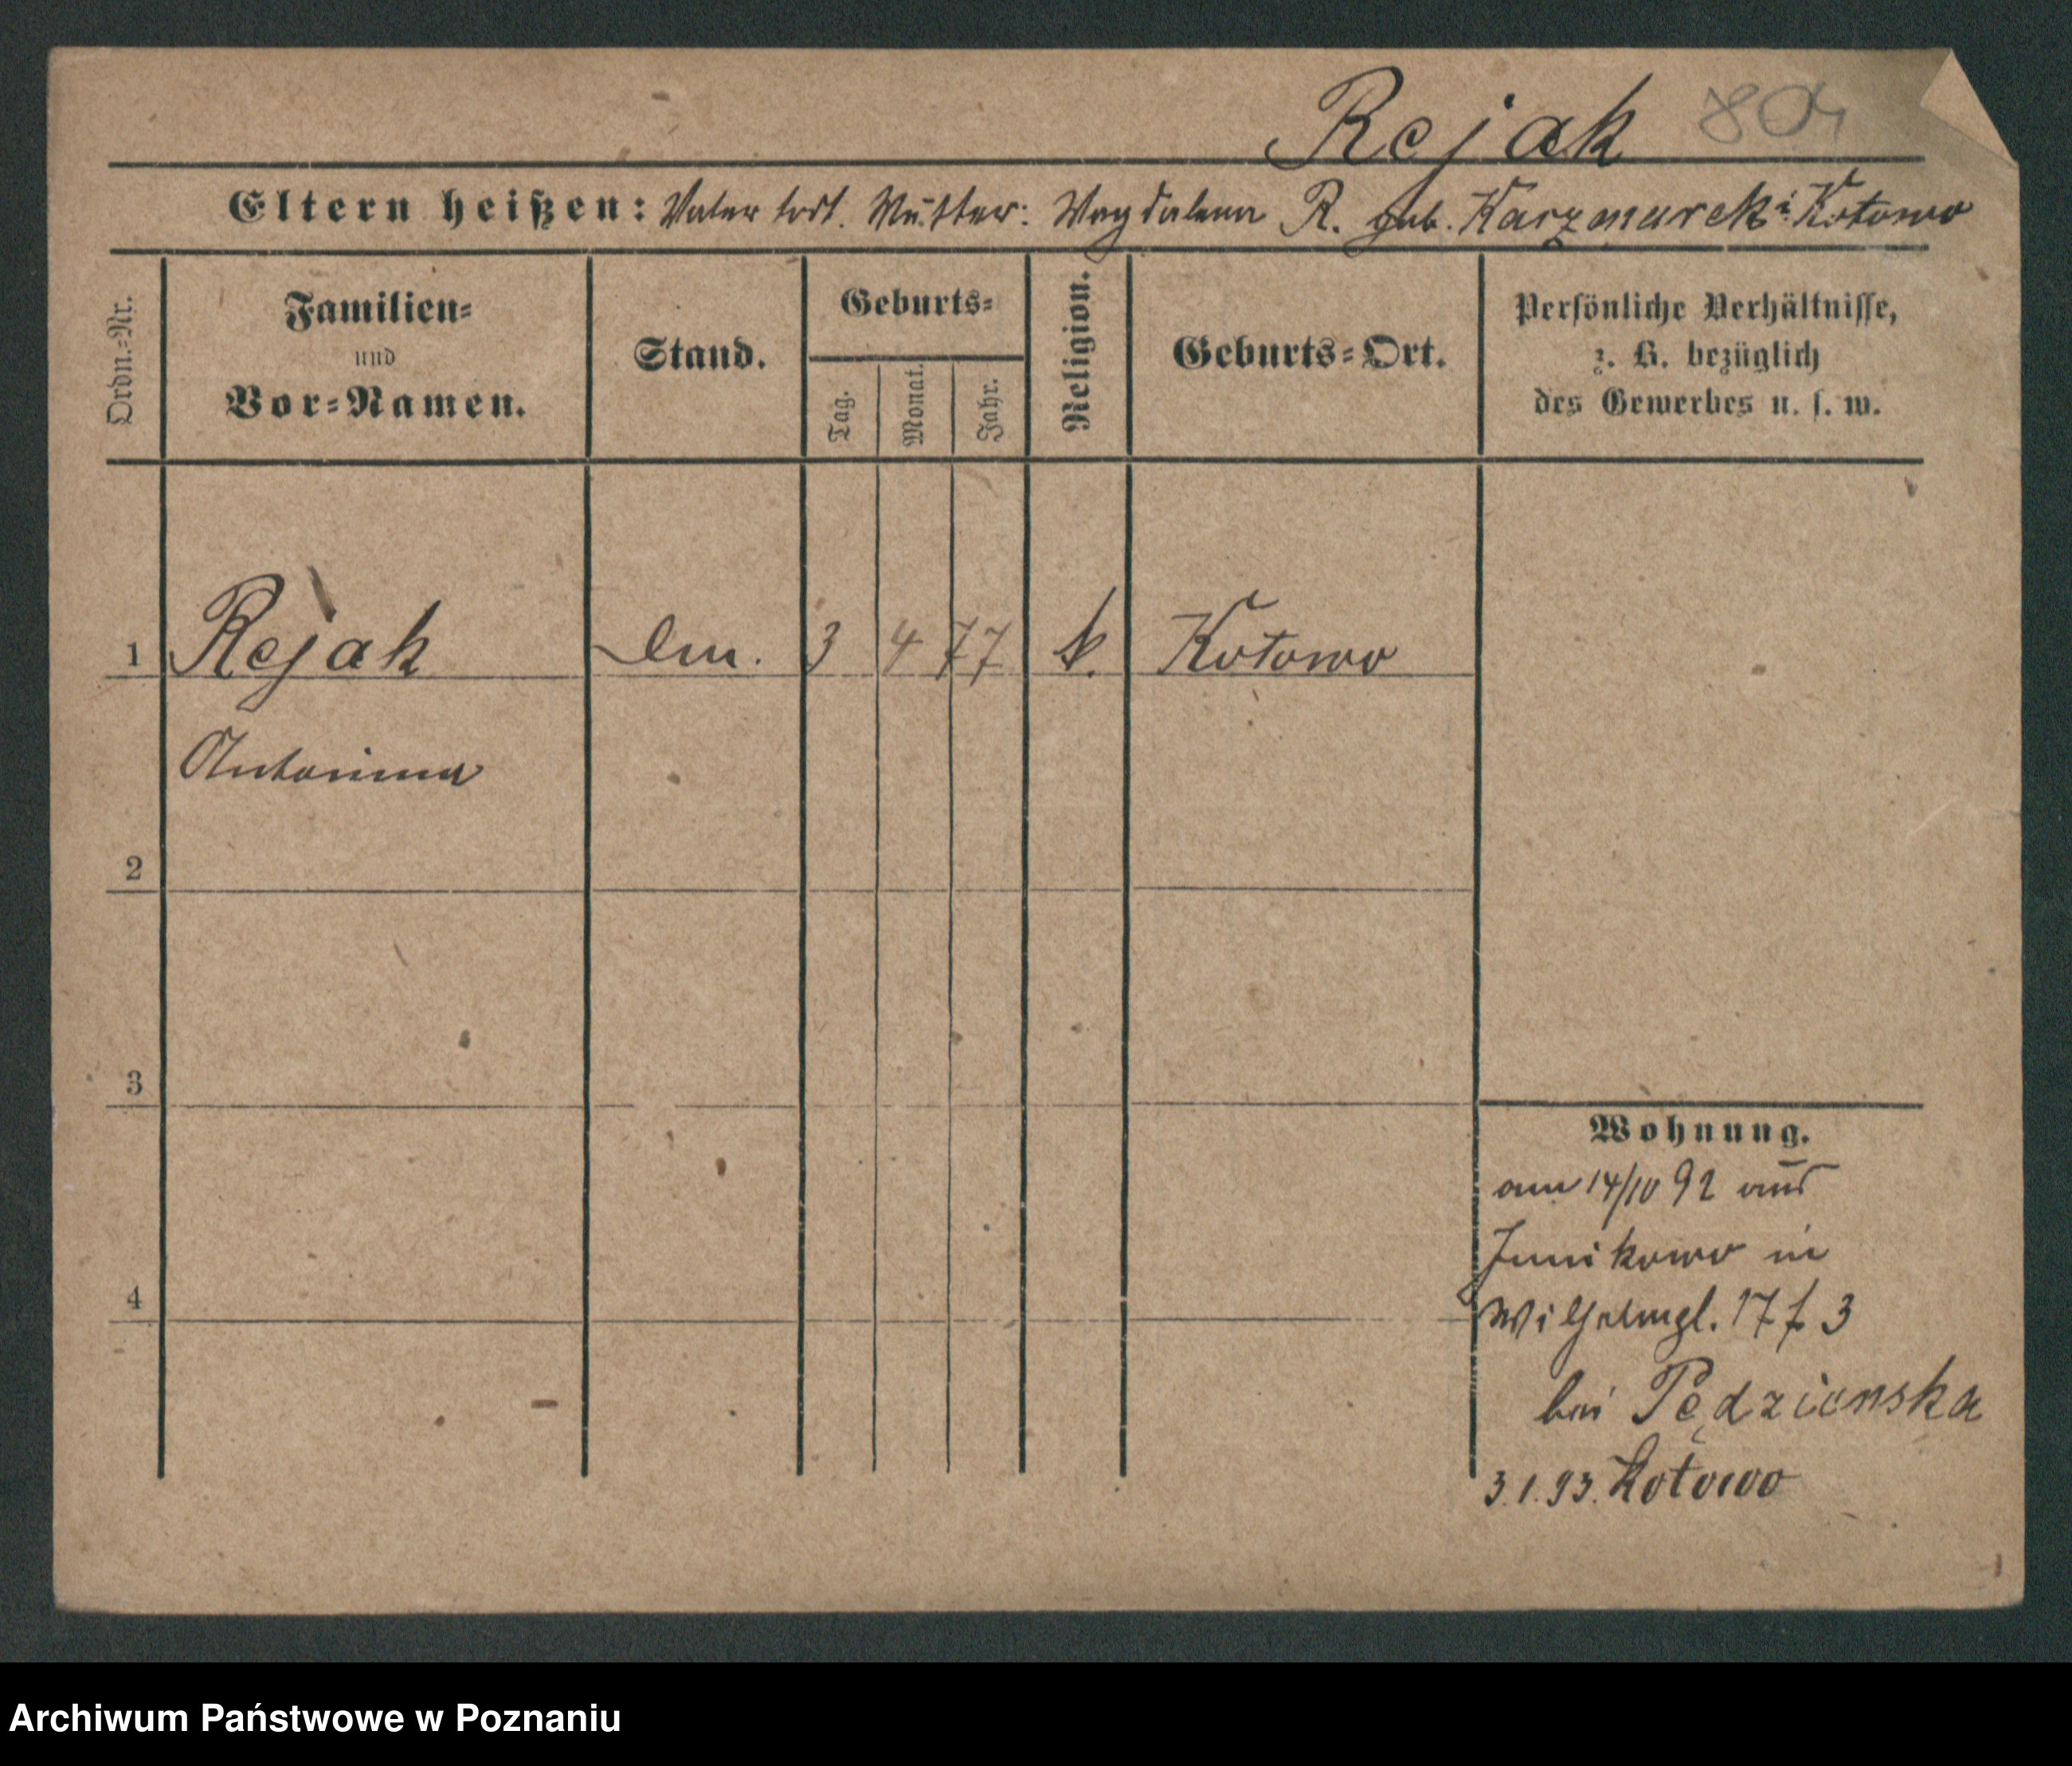 Rejak 804
Eltern heißen: Vater todt. Mutter: Magdalena R. geb. Karzmarek i. Kotowo
Ordn.-Nr.
Familien-
und
Vor-Namen.
Stand.
Geburts-
Tag.
Monat.
Jahr.
Religion.
Geburts-Ort.
Persönliche Verhältnisse,
z. B. bezüglich
des Gewerbes u. s. w.
1 Rejak 3 4 77 k. Kotowo
Antonina
2
3
4
Wohnung.
am 14/10 92 aus
Junikowo in
Wilhelmpl. 17 f. 3
bei Pędzionska
3.1.93. Kotowo
Archiwum Państwowe w Poznaniu